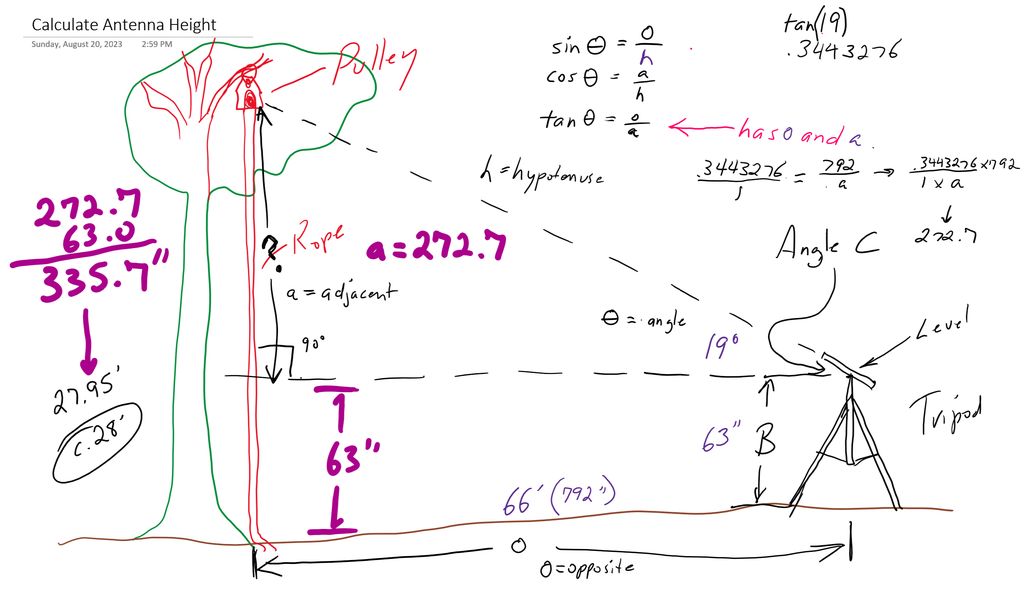 Calculate Antenna Height
Sunday, August 20, 2023 2:59 PM
Pulley
sin θ = o/h
cos θ = a/h
tan θ = o/a
has o and a.
tan(19)
.3443276
h = hypotenuse
.3443276/1 = 792/a → .3443276 × 792/1 × a
272.7
272.7
63.0
335.7"
27.95'
c. 28'
?
Rope
a = 272.7
a = adjacent
90°
θ = angle
Angle C
19°
Level
Tripod
63"
63"
B
66' (792")
O
O = opposite